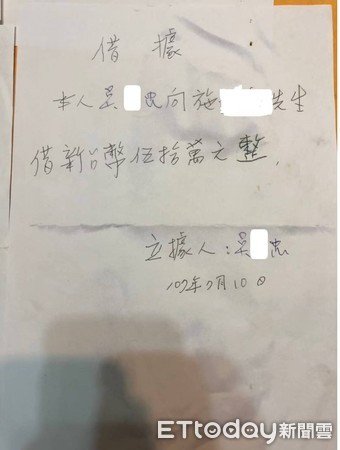 借據
本人吳 忠向施 先生
借新台幣伍拾萬元整,
立據人:吳 忠
102年7月10日
ETtoday新聞雲